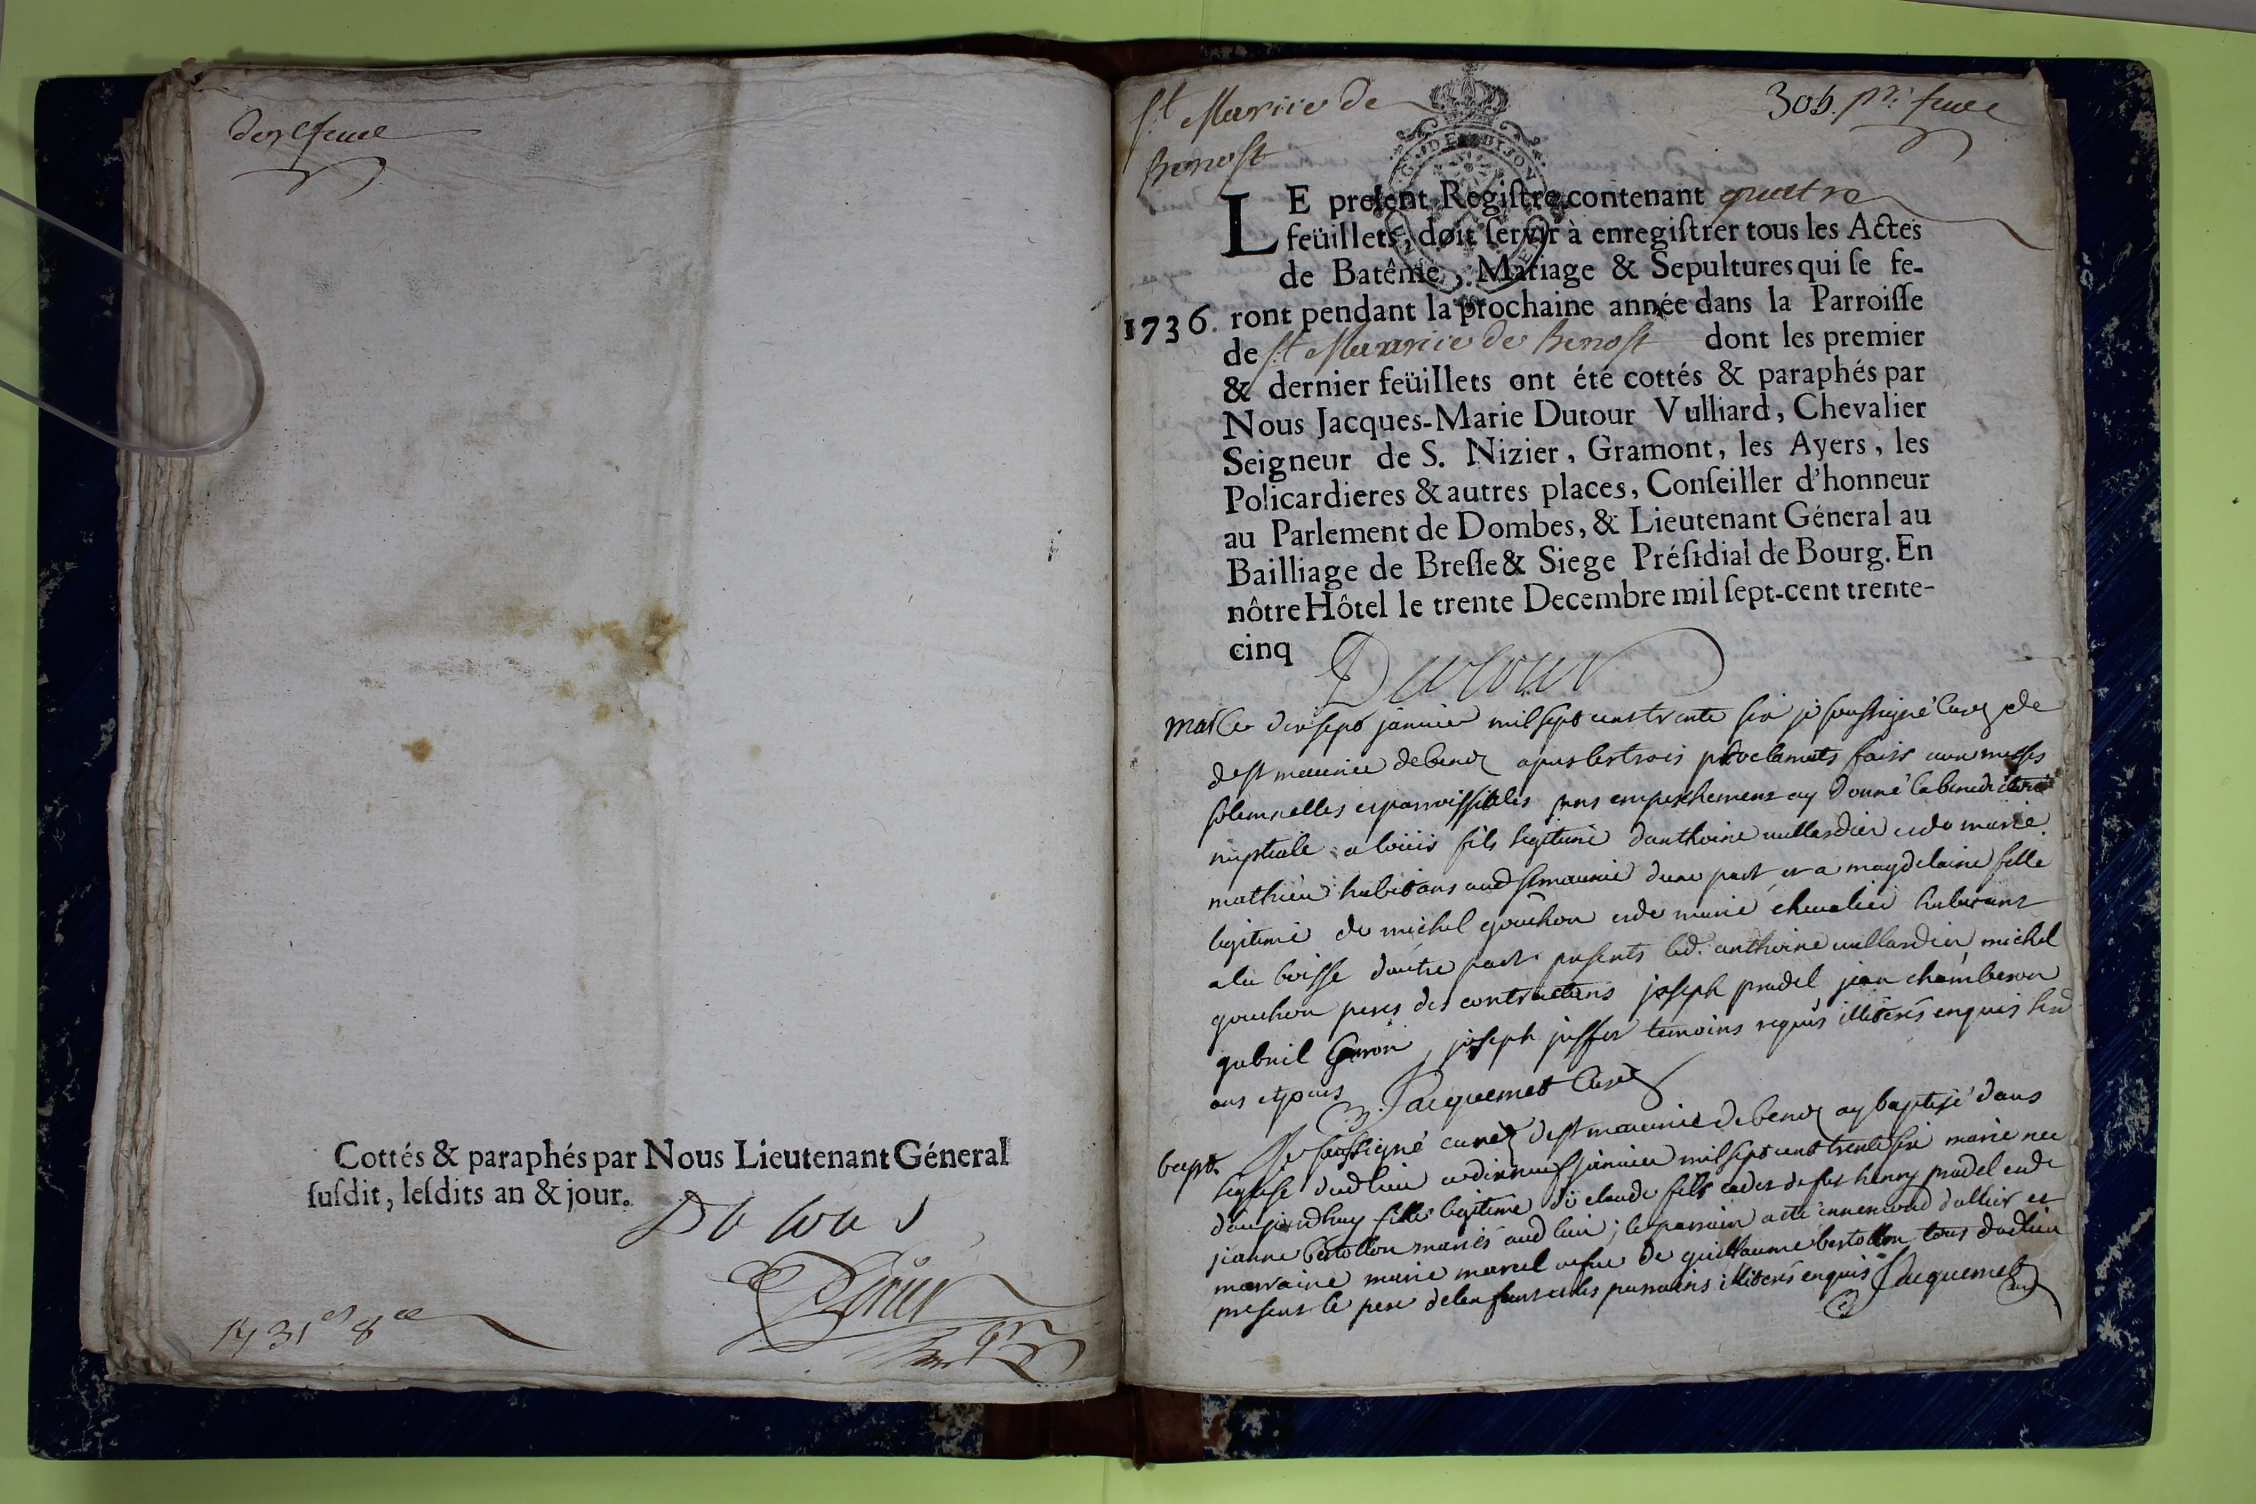 Cottés & paraphés par Nous Lieutenant Géneral
ſuſdit, leſdits an & jour.
Dutour
St Maurice de
Benost
305. pr. feuee
LE preſent Regiſtre contenant quatre
feüillets, doit ſervir à enregiſtrer tous les Actes
de Batême, Mariage & Sepultures qui ſe fe-
1736. ront pendant la prochaine année dans la Parroiſſe
de St Maurice de Benost dont les premier
& dernier feüillets ont été cottés & paraphés par
Nous Jacques-Marie Dutour Vulliard, Chevalier
Seigneur de S. Nizier, Gramont, les Ayers, les
Policardieres & autres places, Conſeiller d'honneur
au Parlement de Dombes, & Lieutenant Géneral au
Bailliage de Breſſe & Siege Préſidial de Bourg. En
nôtre Hôtel le trente Decembre mil ſept-cent trente-
cinq
Dutour
mar Ce dix sept janvier mil sept cens trente six je soussigné Curez de
de st maurice de apres les trois proclamats faits aux messes
solemnelles et parroissialles sans empeschement ay donné la benediction
nuptiale a loüis fils legitime d'anthoine vullardier et de marie
mathieu habitans aud st maurice d'une part et a magdelaine fille
legitime de michel gouchon et de marie chevalier habitants
a la boisse d'autre part. presents led. anthoine vullardier michel
gouchon peres des contractans joseph pradel jean chamberon
gabriel joseph temoins requis illiterés enquis
Jacquemet Curé
bapt. Je soussigné curéz de st maurice de ay baptisé dans
l'eglise dud lieu ce dixneuf janvier mil sept cens trente six marie née
d'aujourdhuy fille legitime de claude fils de feu henry pradel et de
jeanne bertollon mariés aud lieu; le parrain a été
marraine marie marcel vefve de guillaume bertollon tous dud lieu
present le pere de l'enfant et les parrains illiterés enquis
Jacquemet